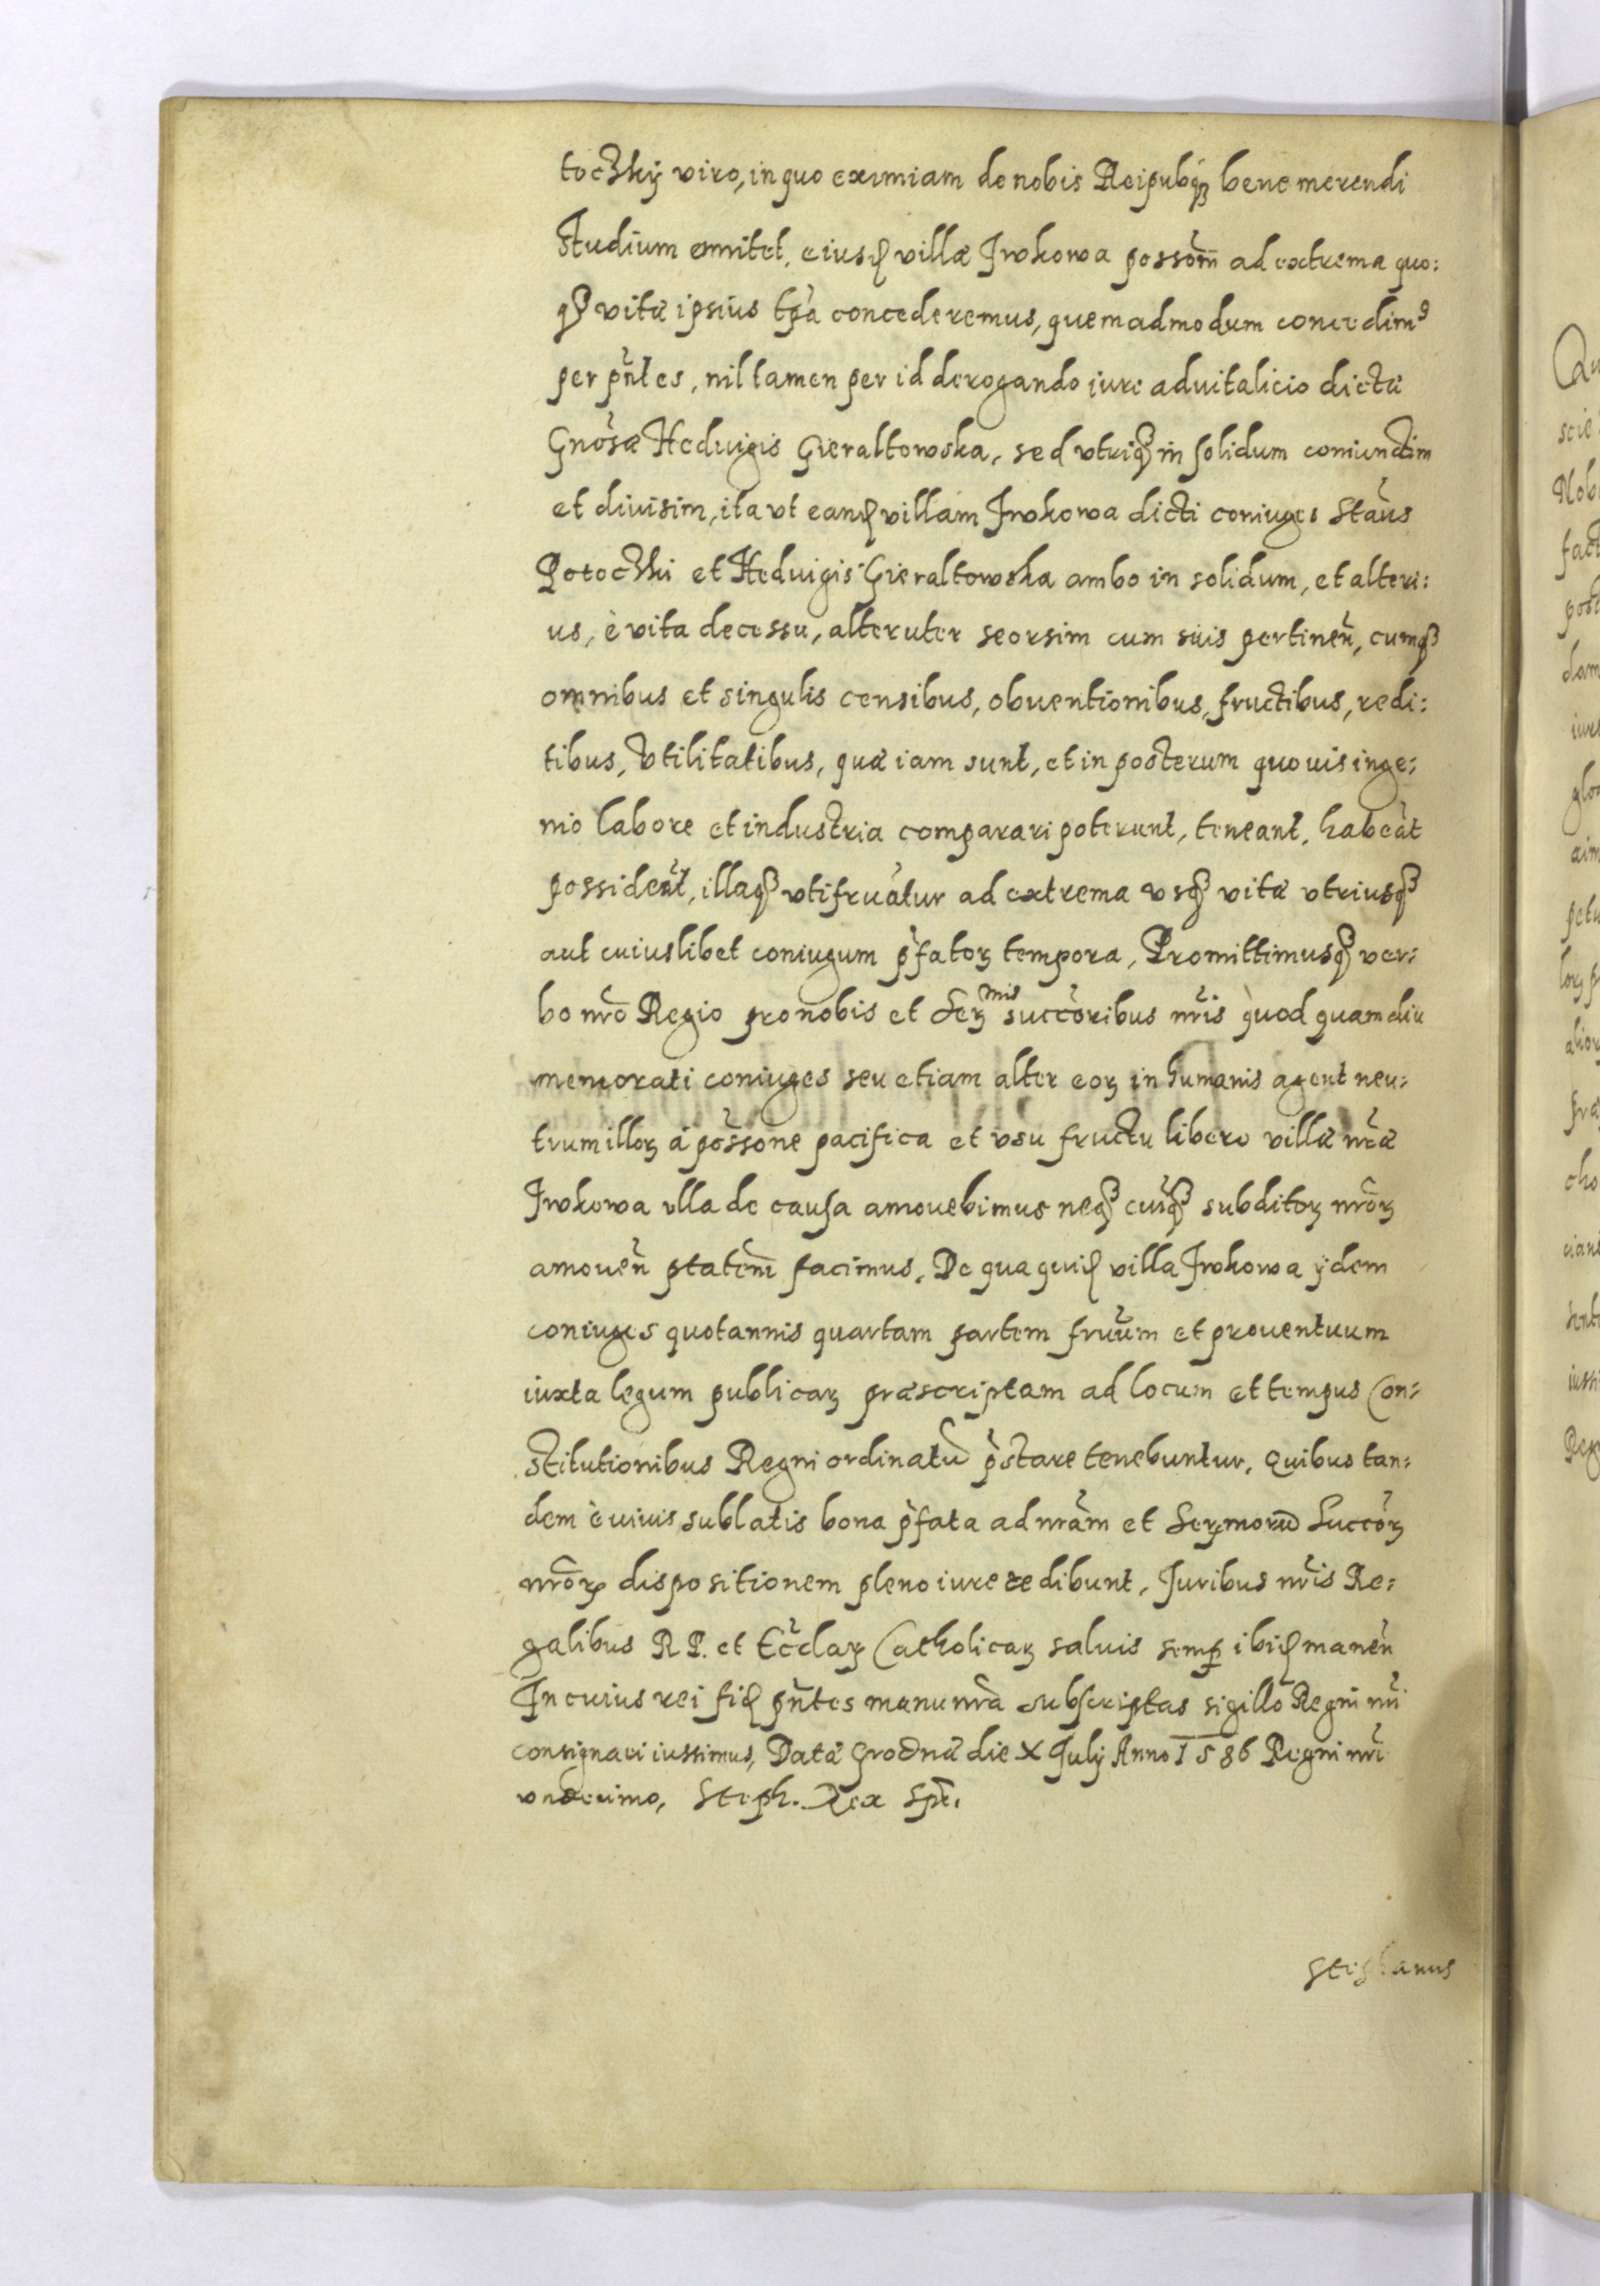 toczkÿ viro, in quo eximiam de nobis Reipubq́ꝫ bene merendi
Studium ennitet, eiusꝗ villæ Jwkowa posso͂m ad extrema quo:
qꝫ vitæ ipsius tp̃a concederemus, quemadmodum concedimꝰ
per pñtes, nil tamen per id derogando iure aduitalicio dictæ
Gnõsæ Heduigis Gieraltowska, sed vtriqꝫ in solidum coniunctim
et diuisim, ita vt eanꝗ villam Jwkowa dicti coniuges Stãus
Potoczki et Heduigis Gieraltowska ambo in solidum, et alteri:
us, è vita decessu, alteruter seorsim cum suis pertineñ, cumqꝫ
omnibus et singulis censibus, obuentionibus, fructibus, redi:
tibus, vtilitatibus, quæ iam sunt, et in posterum quouis inge:
nio labore et industria comparari poterunt, teneant, habeãt
possideãt, illaqꝫ vtifruãtur ad extrema vsqꝫ vitæ vtriusqꝫ
aut cuiuslibet coniugum p̃fatoꝝ tempora, Promittimusqꝫ ver:
bo nr̃o Regio pro nobis et Serꝫmis succõribus nr̃is quod quamdiu
memorati coniuges seu etiam alter eoꝝ in humanis agent neu:
trum illoꝝ à possõne pacifica et vsu fructu libero villæ nr̃æ
Jwkowa vlla de causa amouebimus neqꝫ cuiqꝫ subditoꝝ nr̃oꝝ
amoueñ ptatem̃ facimus, De qua quiꝗ villa Jwkowa ÿdem
coniuges quotannis quartam partem fruũm et prouentuum
iuxta legum publicaꝝ præscriptam ad locum et tempus Con:
stitutionibus Regni ordinatũ p̃stare tenebuntur, Quibus tan:
dem è viuis sublatis bona p̃fata ad nr̃am et Serꝫmorũ Succõꝝ
nr̃oꝝ dispositionem pleno iure redibunt, Juribus nr̃is Re:
galibus R P. et Eccl̃aꝝ Catholicaꝝ saluis semꝑ ibiꝗ maneñ
In cuius rei fiꝗ pñtes manu nr̃a subscriptas sigillo Regni nr̃i
consignari iussimus, Datæ Grodnæ die X Julÿ Anno 1586 Regni nr̃i
vndecimo, Steph. Rex Spt.
Stephanus